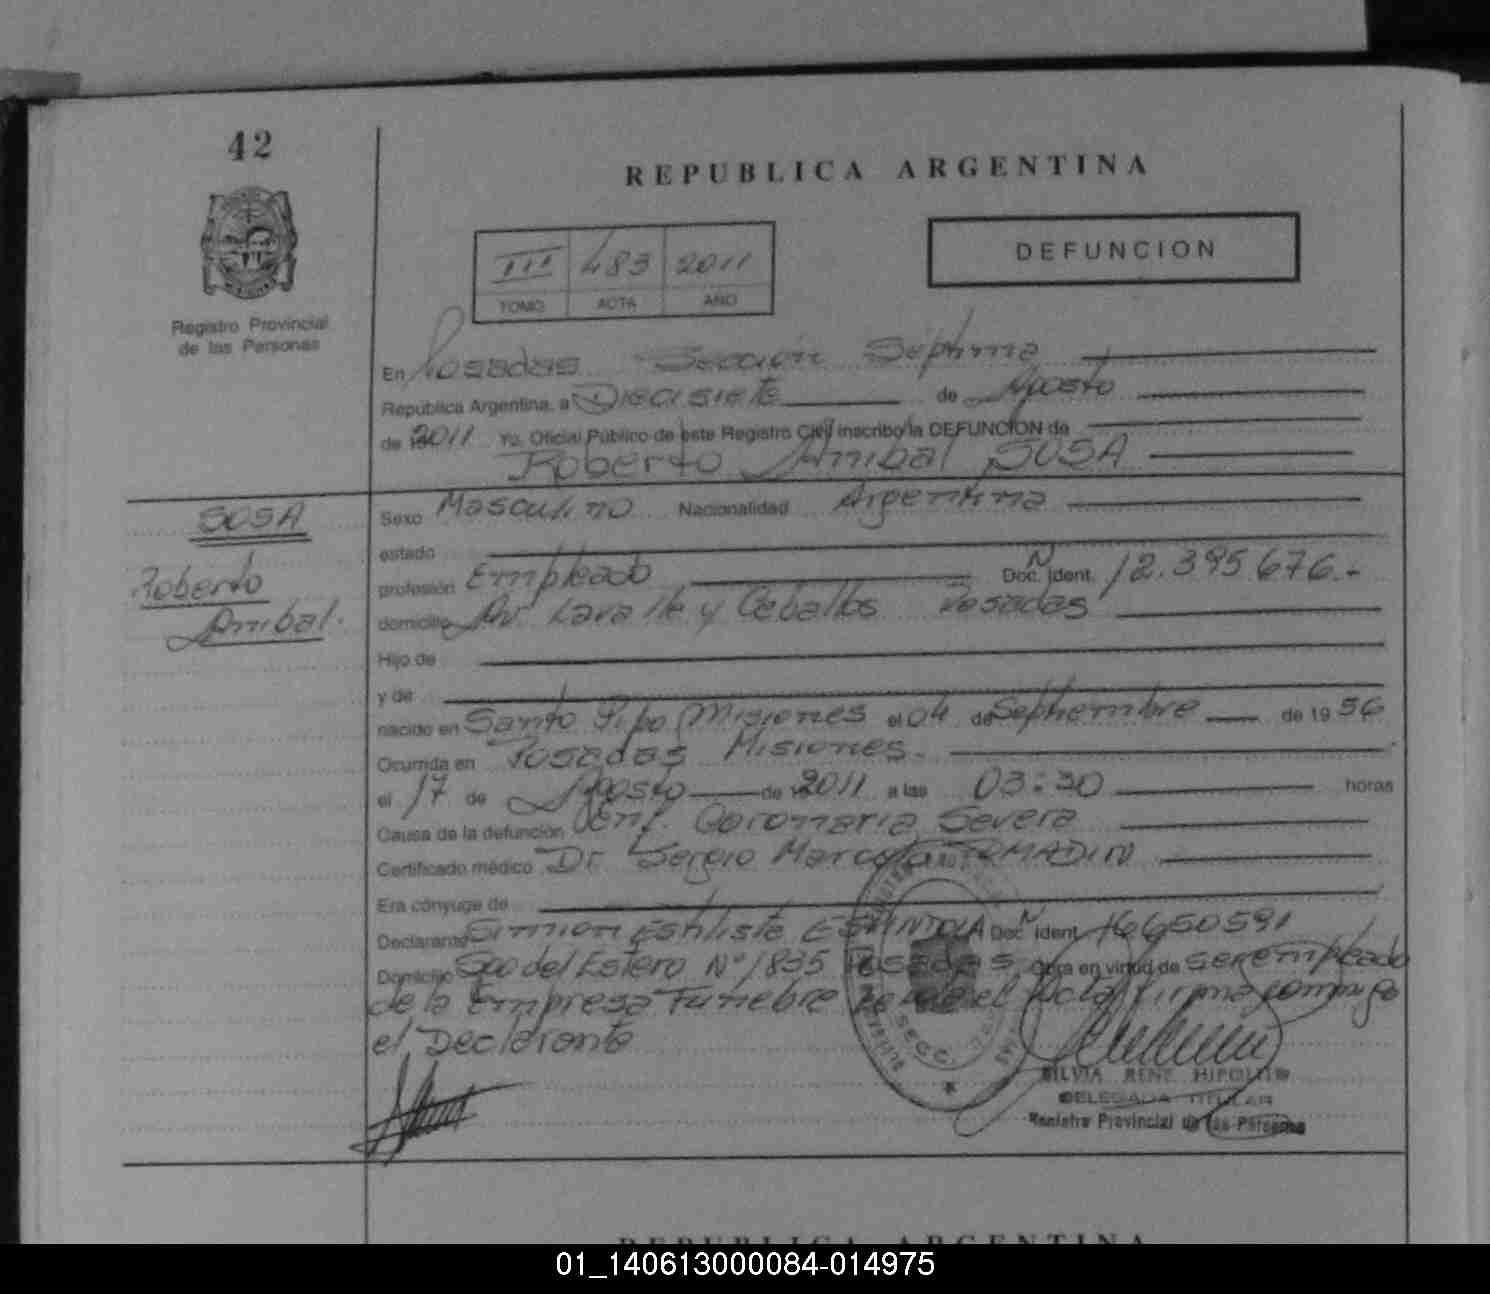 42
REPUBLICA ARGENTINA
Registro Provincial
de las Personas
III 483 2011
TOMO ACTA AÑO
DEFUNCION
En Posadas Sección Séptima
República Argentina, a Diecisiete de Agosto
de 2011 Yo, Oficial Público de este Registro Civil inscribo la DEFUNCION de
Roberto Anibal SOSA
SOSA
Roberto
Anibal.
Sexo Masculino Nacionalidad Argentina
estado
profesión Empleado Doc. Nº Ident. 12.395.676.-
domicilio Av. Lavalle y Ceballos Posadas
Hijo de
y de
nacido en Santo Pipo Misiones el 04 de Septiembre de 19 56
Ocurrida en Posadas Misiones.
el 17 de Agosto de 2011 a las 03:30 horas
Causa de la defunción Enf. Coronaria Severa
Certificado médico Dr. Sergio Marcelo
Era cónyuge de
Declarante Simion Doc. Nº Ident. 16650591
Domicilio Sgo del Estero Nº 1835 Posadas Obra en virtud de ser empleado
de la Empresa Funebre el Acta firma conmigo
el Declarante
SILVIA RENE HIPOLITO
DELEGADA TITULAR
Registro Provincial de las Personas
REPUBLICA ARGENTINA
01_140613000084-014975